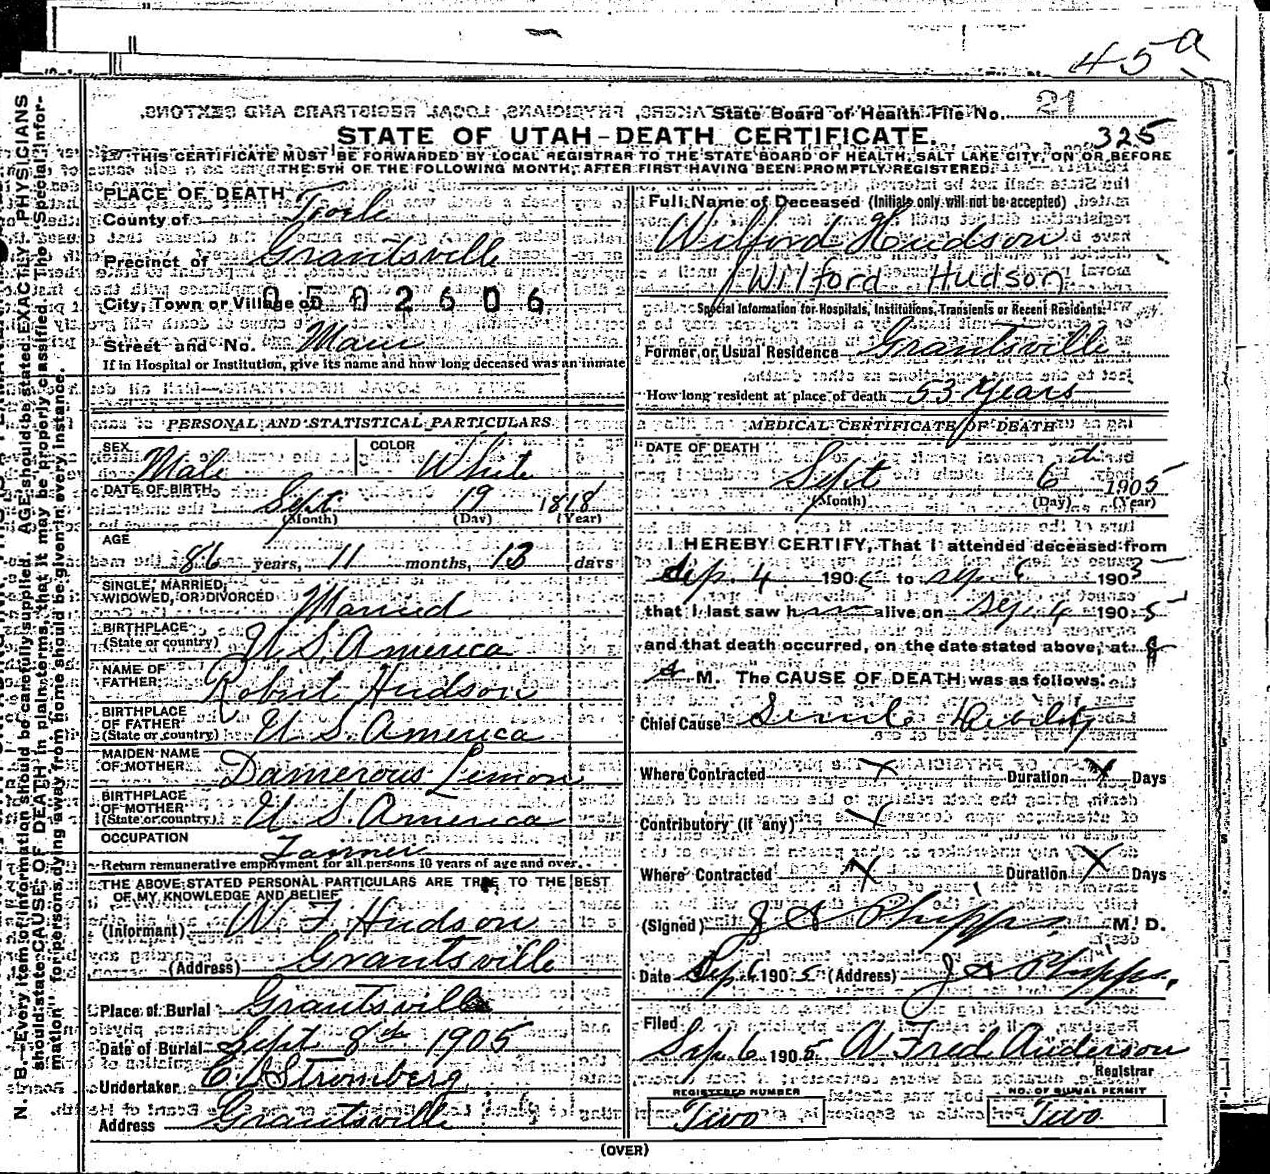 45a
State Board of Health File No. 21
STATE OF UTAH-DEATH CERTIFICATE. 325
THIS CERTIFICATE MUST BE FORWARDED BY LOCAL REGISTRAR TO THE STATE BOARD OF HEALTH, SALT LAKE CITY, ON OR BEFORE
THE 5TH OF THE FOLLOWING MONTH, AFTER FIRST HAVING BEEN PROMPTLY REGISTERED
PLACE OF DEATH
County of Tooele
Precinct of Grantsville
City, Town or Village of 0502606
Street and No. Main
If in Hospital or Institution, give its name and how long deceased was an inmate
PERSONAL AND STATISTICAL PARTICULARS
SEX Male COLOR White
DATE OF BIRTH Sept 19 1818
(Month) (Day) (Year)
AGE
86 years, 11 months, 13 days
SINGLE, MARRIED,
WIDOWED, OR DIVORCED Married
BIRTHPLACE
(State or country) U S America
NAME OF
FATHER Robert Hudson
BIRTHPLACE
OF FATHER
(State or country) U S America
MAIDEN NAME
OF MOTHER Damerous Lemon
BIRTHPLACE
OF MOTHER
(State or country) U S America
OCCUPATION
Return remunerative employment for all persons 10 years of age and over.
THE ABOVE STATED PERSONAL PARTICULARS ARE TRUE TO THE BEST
OF MY KNOWLEDGE AND BELIEF
(Informant) W. F. Hudson
(Address) Grantsville
Place of Burial Grantsville
Date of Burial Sept 8th 1905
Undertaker Stromberg
Address Grantsville
Full Name of Deceased (Initials only will not be accepted)
Wilford Hudson
Wilford Hudson
Special Information for Hospitals, Institutions, Transients or Recent Residents.
Former or Usual Residence Grantsville
How long resident at place of death 53 years
MEDICAL CERTIFICATE OF DEATH
DATE OF DEATH
Sept 6th 1905
(Month) (Day) (Year)
I HEREBY CERTIFY, That I attended deceased from
Sep. 4 190 to Sep. 6 1905
that I last saw h alive on Sep. 4 1905
and that death occurred, on the date stated above, at 8
A M. The CAUSE OF DEATH was as follows:
Chief Cause Senile Debility
Where Contracted X Duration X Days
Contributory (if any) X
Where Contracted X Duration X Days
(Signed) J A Phipps M. D.
Date Sep 6 1905 (Address) J A Phipps.
Filed
Sep. 6 1905 A Fred Anderson
Registrar
REGISTERED NUMBER NO. OF BURIAL PERMIT
Two Two
(OVER)
N. B.—Every item of information should be carefully supplied. AGE should be stated EXACTLY. PHYSICIANS
should state CAUSE OF DEATH in plain terms, that it may be properly classified. The "Special Infor-
mation" for persons dying away from home should be given in every instance.